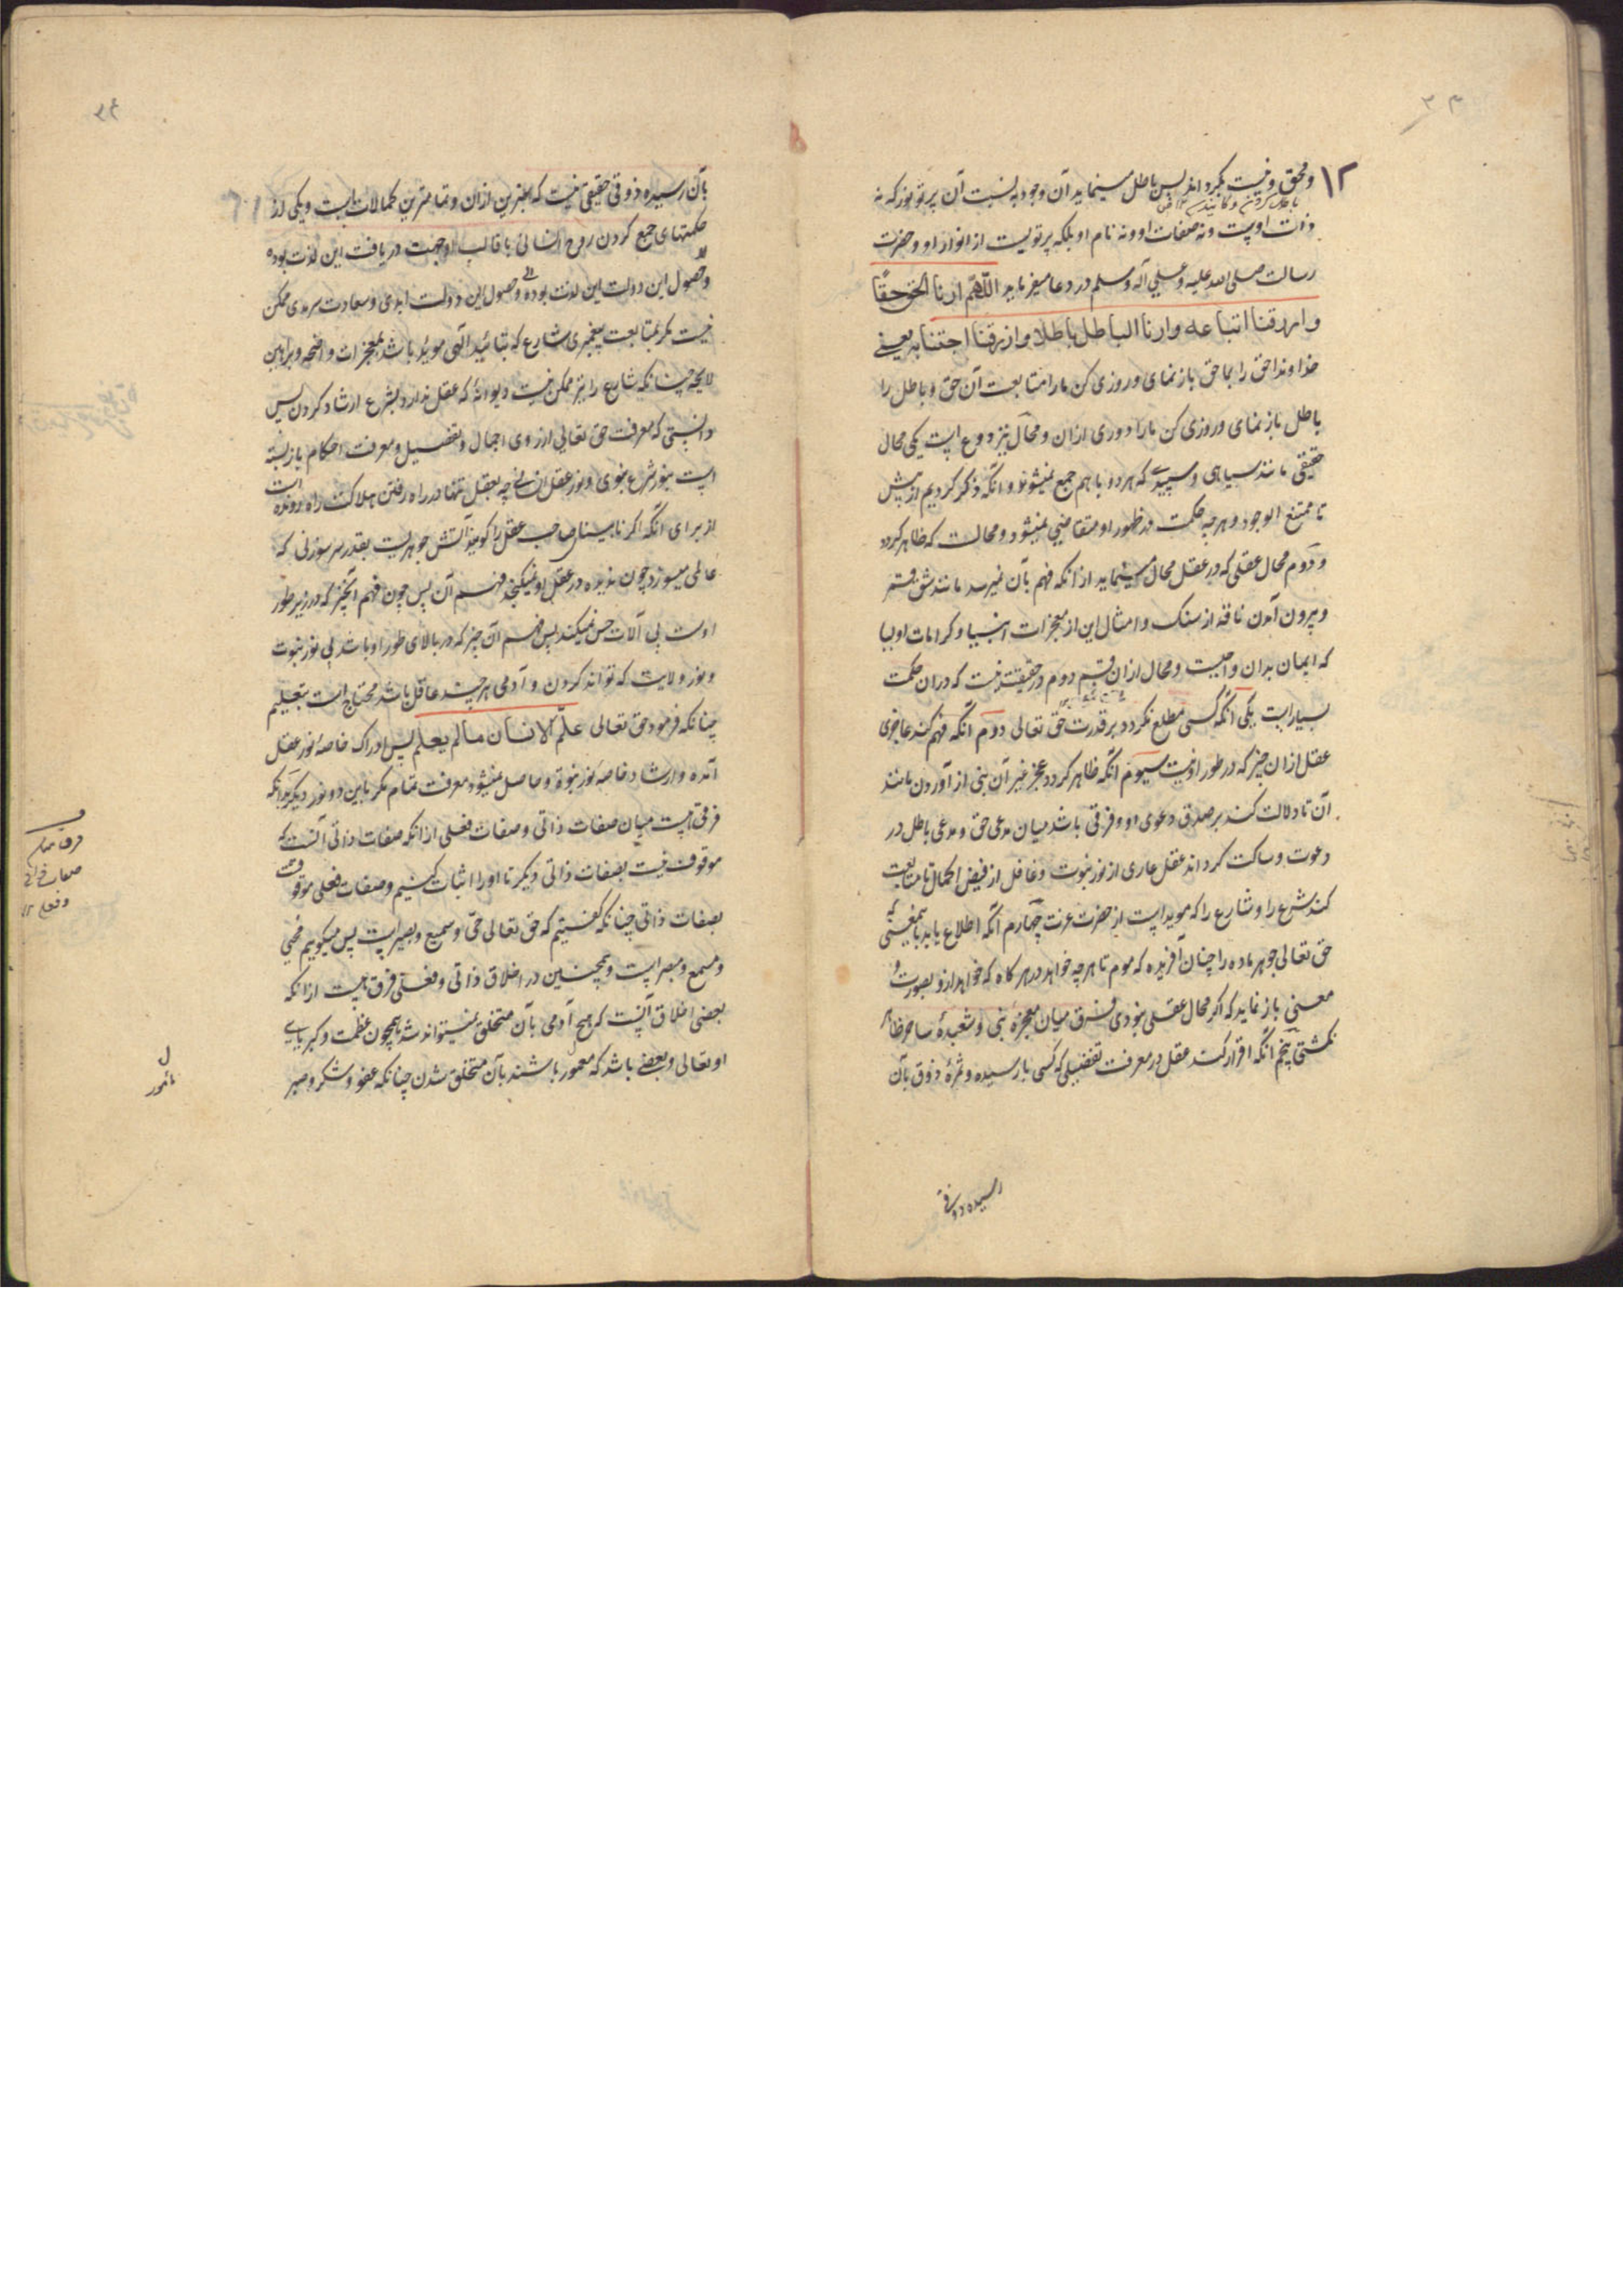 ۱۲
و محق و نیست گرداند پس باطل مینماید آن وجود به نسبت آن پرتو نور که نه
ذات اوست و نه صفات او و نه نام او بلکه پرتویست از انوار او و حضرت
رسالت صلی الله علیه و علی آله و سلم در دعا میفرماید اللّهمّ ارنا الحق حقًا
وارزقنا اتباعه وارنا الباطل باطلا وارزقنا اجتنابه یعنی
خداوندا حق را بما حق بازنمای و روزی کن ما را متابعت آن حق و باطل را
باطل بازنمای و روزی کن ما را دوری ازان و محال بر دو نوع است یکی محال
حقیقی مانند سیاهی و سپیدی که هر دو با هم جمع نمیشوند و آنکه ذکر کردیم از پیش
تا ممتنع الوجود و هرچه حکمت در ظهور او متقاضی نمیشود و محالست که ظاهر گردد
و دوم محال عقلی که در عقل محال مینماید از آنکه فهم بآن نمیرسد مانند شق قمر
و بیرون آمدن ناقه از سنک و امثال این از معجزات انبیا و کرامات اولیا
که ایمان بدان واجبست و محال ازان قسم دوم در حقیقت نیست که دران حکمت
بسیار است یکی آنکه کسی مطلع نگردد بر قدرت حق تعالی دوم آنکه فهم کند عاجزی
عقل ازان چیز که در طور او نیست سیوم آنکه ظاهر گردد عجز غیر آن نبی از آوردن مانند
آن تا دلالت کند بر صدق دعوی او و فرقی باشد میان مدعی حق و مدعی باطل در
دعوت و ساکت گرداند عقل عاری از نور نبوت و غافل از فیض الکمال تا متابعت
کند شرع را و شارع را که موید است از حضرت عزت چهارم آنکه اطلاع یابد بآنمعنی که
حق تعالی جوهر ماده را چنان آفریده که موم تا هرچه خواهد در هر گاه که خواهد ازو بصورت و
معنی بازنماید که اگر محال عقلی نبودی فرق میان معجزهٔ نبی و شعبدهٔ ساحر ظاهر
نکشتی پنجم آنکه اقرار کند عقل در معرفت تفضیلی که کسی بآن رسیده و ثمرهٔ ذوق بآن
رسیده ذوقی
بآن رسیده ذوقی حقیقی نیست که بهترین ازان و تمامترین کمالات است و یکی از
حکمتهای جمع کردن روح انسانی با قالب او جهت دریافت این لذت بوده
و حصول این دولت این لذت بوده و حصول این دولت ابدی و سعادت سرمدی ممکن
نیست مگر بمتابعت پیغمبری شارع که بتائید الهی موید باشد بمعجزات واضحه و براهین
لایحه چنانکه شارع را نیز ممکن نیست دیوانهٔ که عقل ندارد بشرع ارشاد کردن پس
دانستی که معرفت حق تعالی از روی اجمال و تفضیل و معرفت احکام باز بسته
است بنور شرع نبوی و نور عقل انسانی چه بعقل تنها در راه رفتن هلاکت راه رونده است
از برای آنکه اگر نابینای صاحب عقل را گویند آتش جوهریست بقدر سر سوزنی که
عالمی میسوزد چون ندیده در عقل او نمیگنجد فهم آن پس چون فهم آنچیز که در زیر طور
اوست بی آلات حس نمیکند پس فهم آن چیز که در بالای طور او باشد بی نور نبوت
و نور ولایت که تواند کردن و آدمی هر چند عاقل باشد محتاج است بتعلیم
چنانکه فرمود حق تعالی علّم الانسان مالم یعلم پس ادراک خاصهٔ نور عقل
آمده و ارشاد خاصه نور نبوة و حاصل نمیشود معرفت تمام مگر باین دو نور دیگر بدانکه
فرقی است میان صفات ذاتی و صفات فعلی از آنکه صفات ذاتی آنست که
موقوف نیست بصفات ذاتی دیگر تا او را اثبات کنیم و صفات فعلی موقوفست
بصفات ذاتی چنانکه گفتیم که حق تعالی حی و سمیع و بصیر است پس میگوییم محیی
و مسمع و مبصر است و همچنین در اخلاق ذاتی و فعلی فرق هست از آنکه
بعضی اخلاق آنست که هیچ آدمی بآن متخلق نمیتواند شد همچون عظمت و کبریایی
او تعالی و بعضی باشد که معمور باشند بآن متخلق شدن چنانکه عفو و شکر و صبر
فرق میان
صفات ذاتی
و فعلی ۱۲
ل
مامور